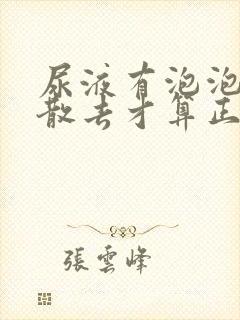 尿液有泡泡
散去才算正
張雲峰